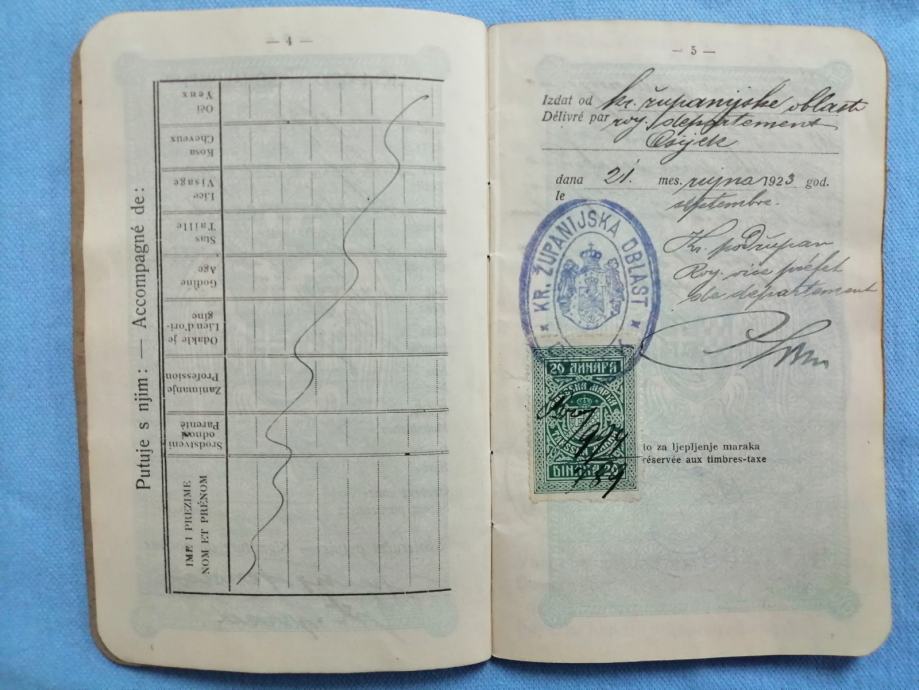 — 4 —
Putuje s njim: — Accompagné de:
IME I PREZIME
NOM ET PRÉNOM
Srodstveni
odnos
Parenté
Zanimanje
Profession
Odakle je
Lieu d'ori-
gine
Godine
Age
Stas
Taille
Lice
Visage
Kosa
Cheveux
Oči
Yeux
— 5 —
Izdat od kr. županijske oblasti
Délivré par roy. departement
Osijek
dana 21. mes. rujna 1923 god.
le septembre.
Kr. podžupan
Roy. vice préfet
de departement
KR. ŽUPANIJSKA OBLAST
20 ДИНАРА
МАРКА
DINARA 20
to za ljepljenje maraka
réservée aux timbres-taxe